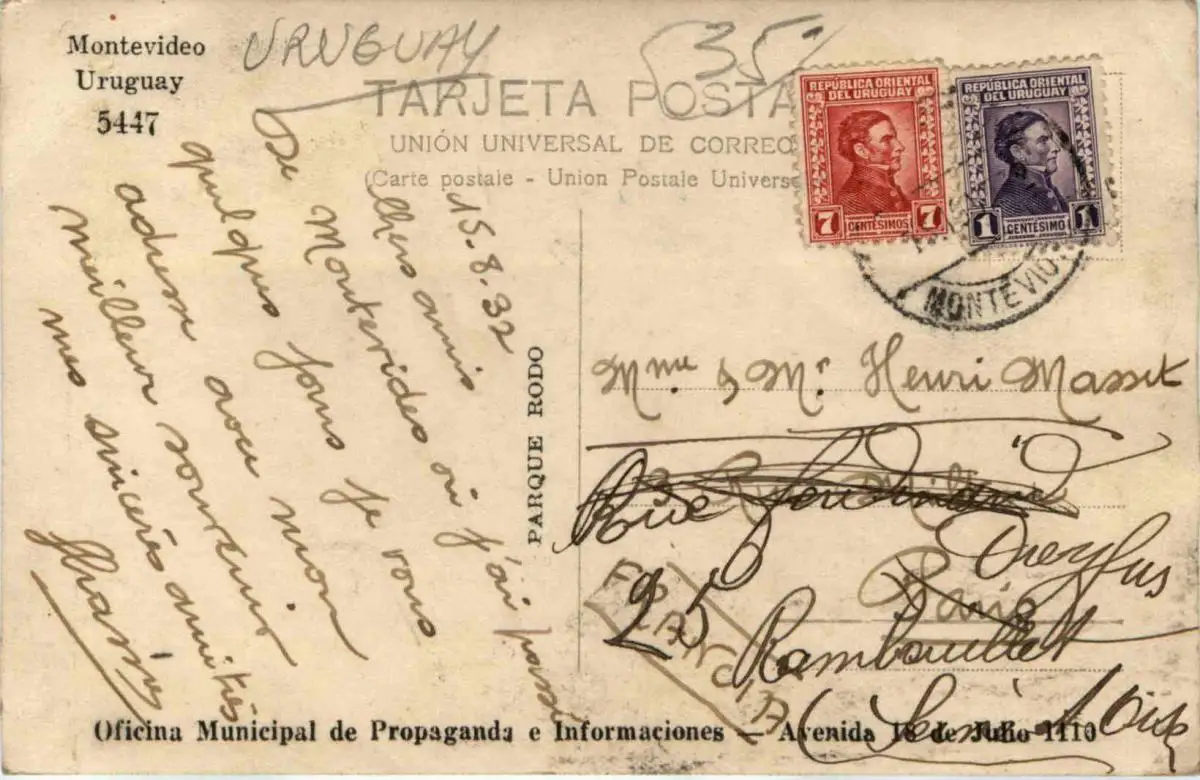 Montevideo
Uruguay
5447
URUGUAY
35%
TARJETA POSTA
UNIÓN UNIVERSAL DE CORREO
(Carte postale - Union Postale Univers
REPÚBLICA ORIENTAL
DEL URUGUAY
7 CENTÉSIMOS 7
REPÚBLICA ORIENTAL
DEL URUGUAY
1 CENTÉSIMO 1
MONTEVID
15.8.32
Chers amis
De Montevideo où j'ai passé
quelques jours je vous
adresse avec mon
meilleur souvenir
mes sincères amitiés
PARQUE RODO
Mme & Mr Henri Masset
Rue
Dreyfus
Paris
25
Rambouillet
(Seine & Oise
FRANCIA
Oficina Municipal de Propaganda e Informaciones — Avenida 18 de Julio 1110